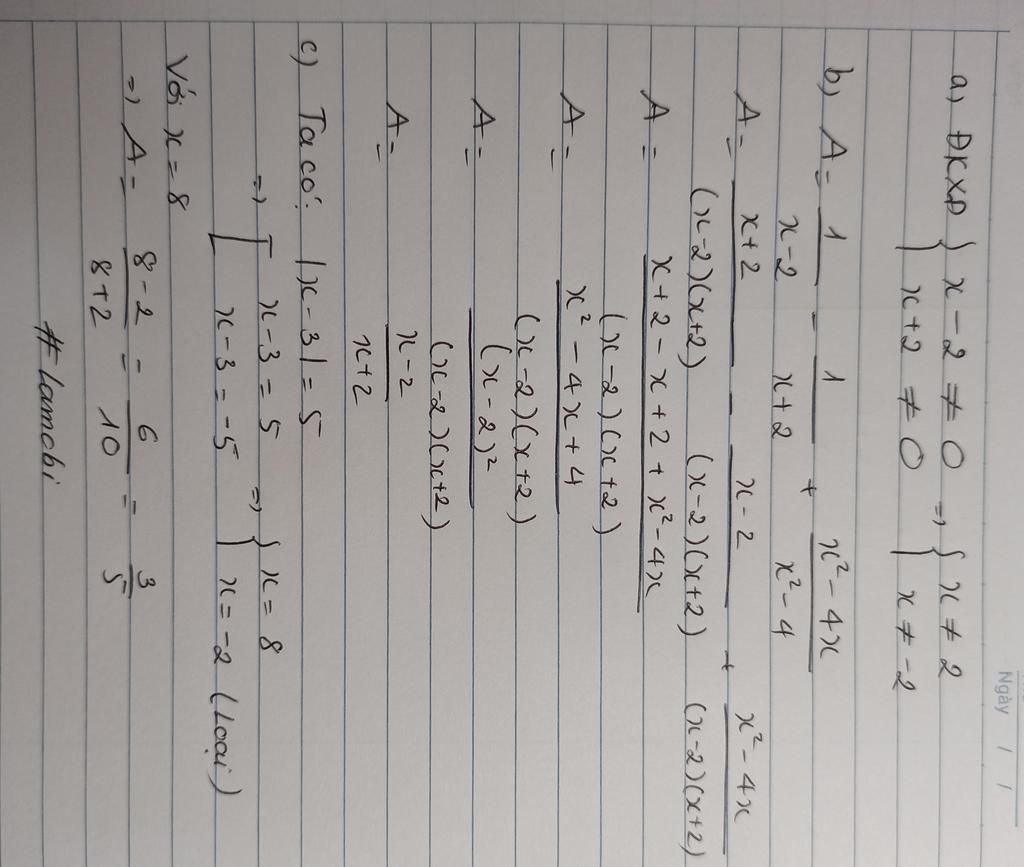 Ngày / /
a) ĐKXĐ { x - 2 ≠ 0 => { x ≠ 2
{ x + 2 ≠ 0 { x ≠ -2
b) A = 1/(x-2) - 1/(x+2) + (x² - 4x)/(x² - 4)
A = (x+2)/((x-2)(x+2)) - (x-2)/((x-2)(x+2)) + (x² - 4x)/((x-2)(x+2))
A = (x+2 - x + 2 + x² - 4x)/((x-2)(x+2))
A = (x² - 4x + 4)/((x-2)(x+2))
A = (x-2)²/((x-2)(x+2))
A = (x-2)/(x+2)
c) Ta có: |x - 3| = 5
=> [ x - 3 = 5 => { x = 8
[ x - 3 = -5 { x = -2 (Loại)
Với x = 8
=> A = (8 - 2)/(8 + 2) = 6/10 = 3/5
# Lamabi